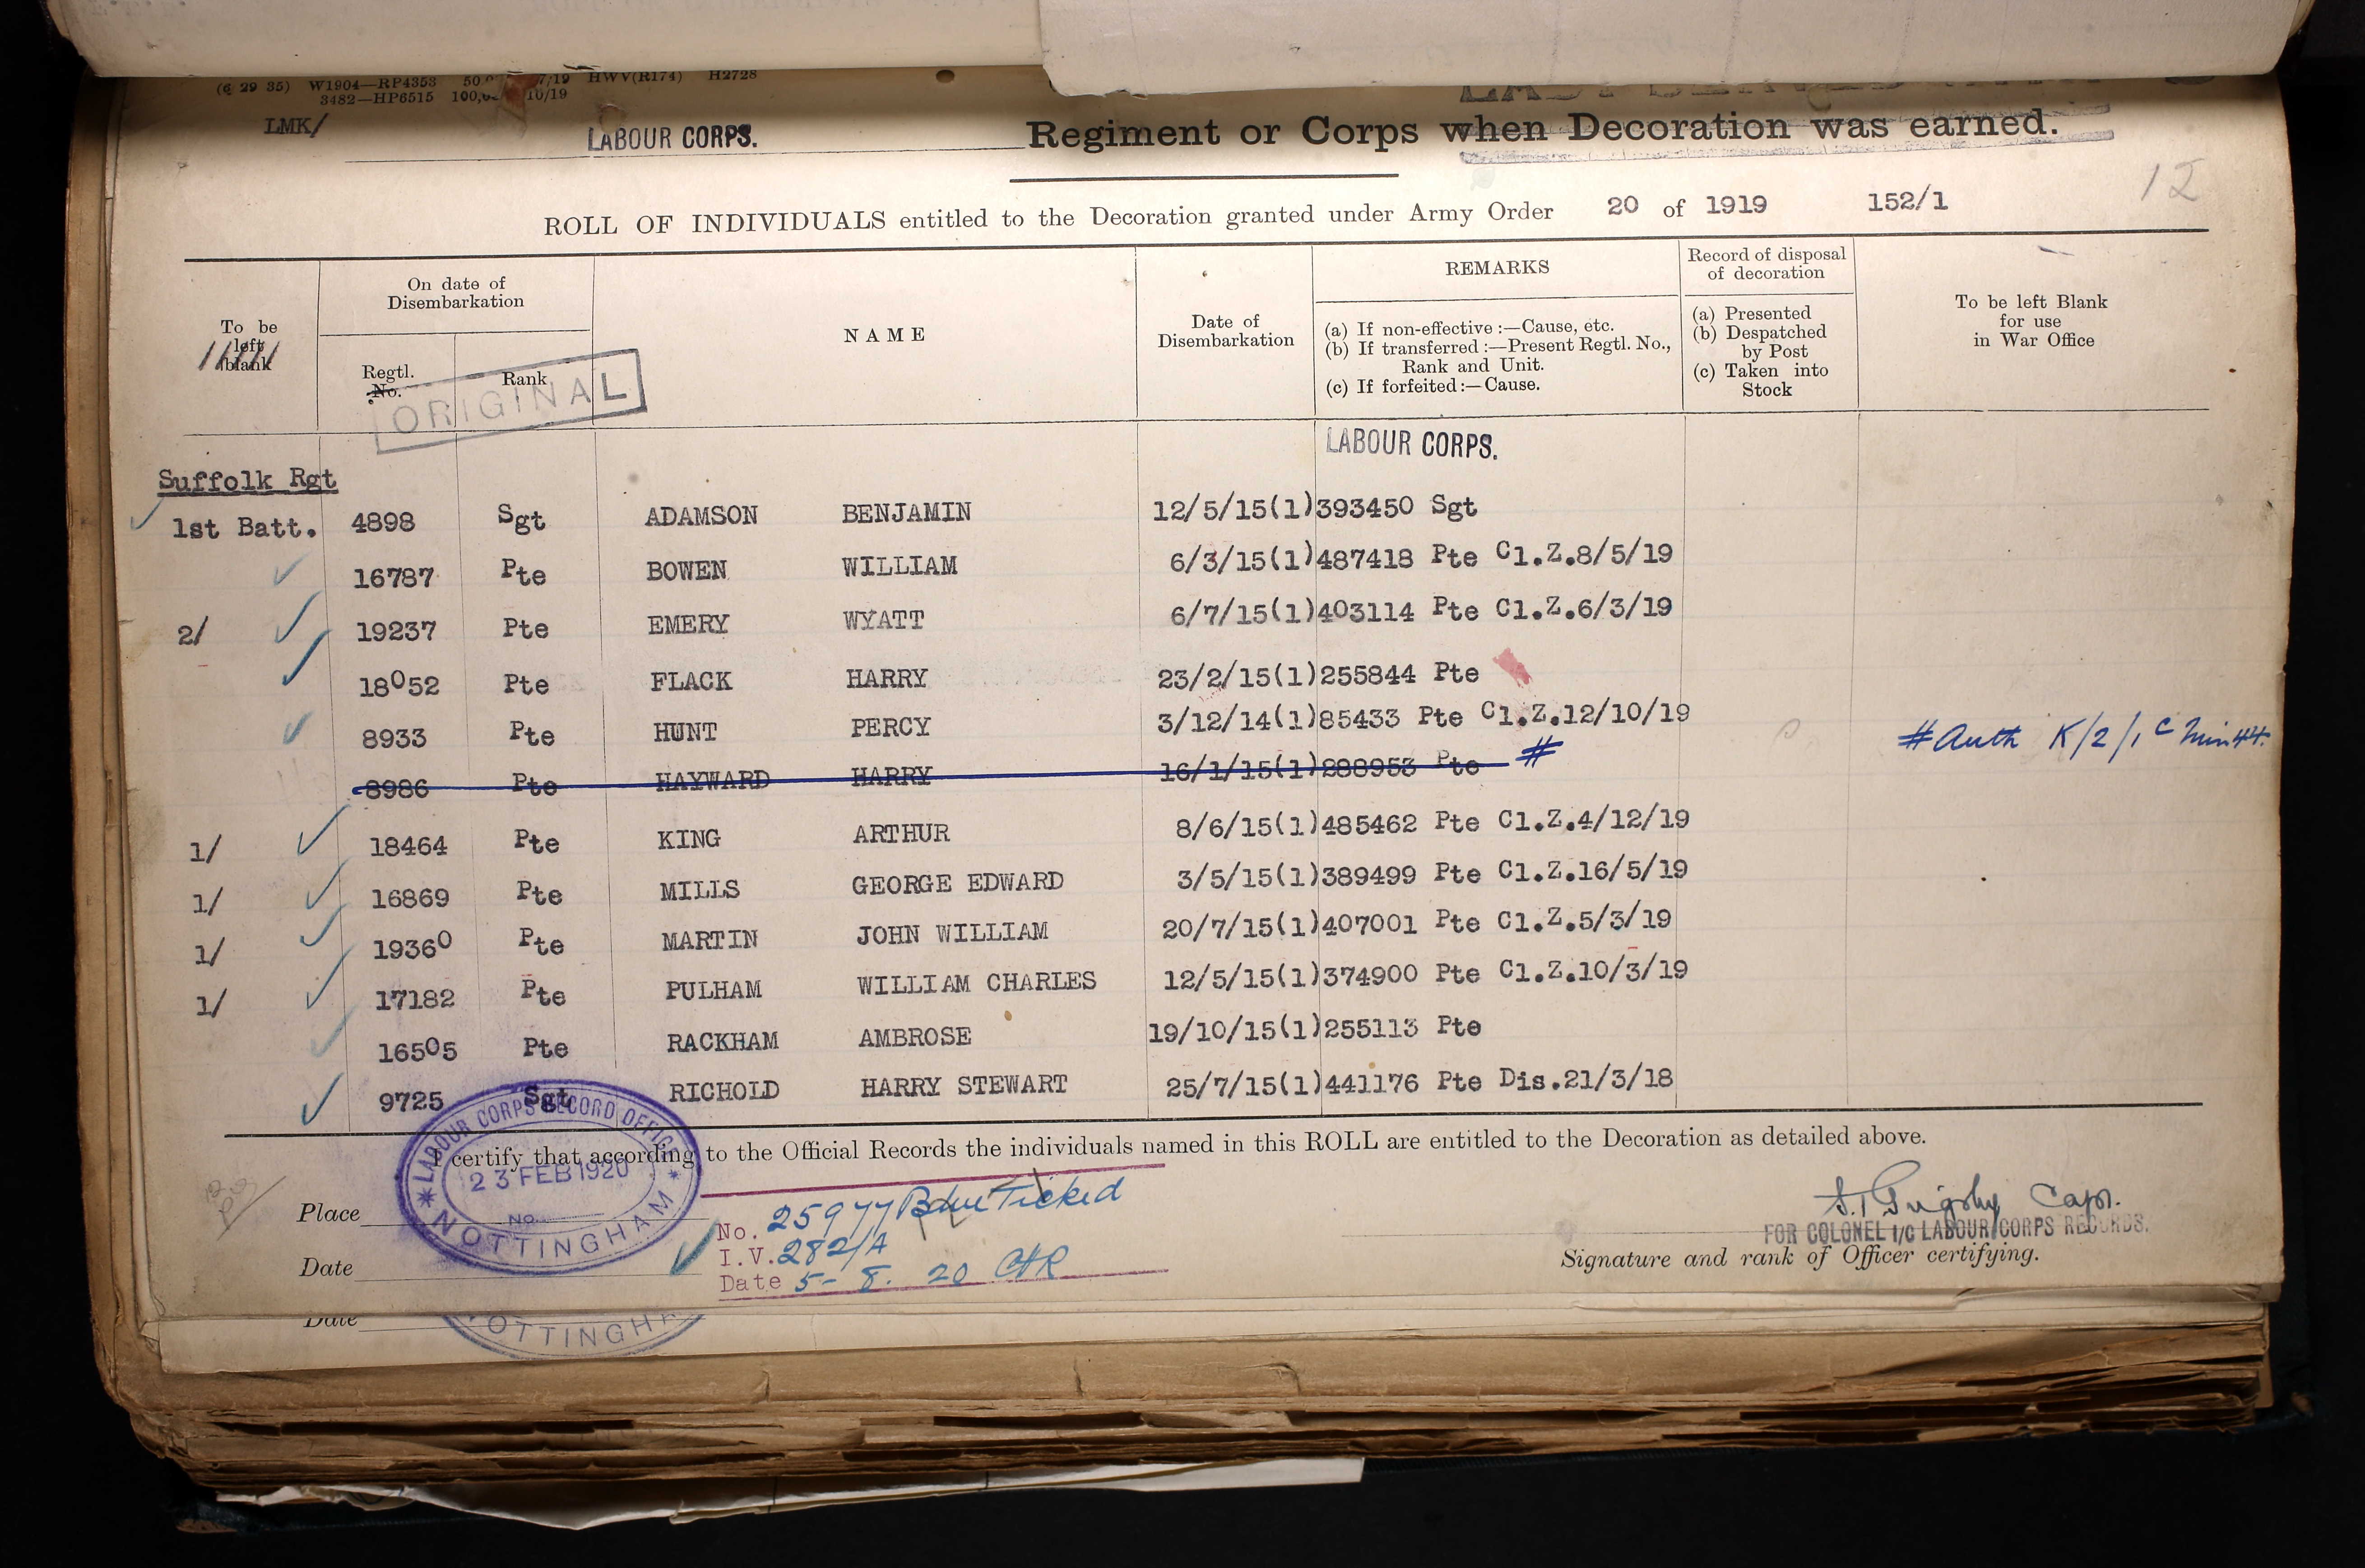 (6 29 35) W1904—RP4353 50,0 7/19 HWV(R174) H2728
3482—HP6515 100,0 10/19
LMK/
LABOUR CORPS. Regiment or Corps when Decoration was earned.
12
ROLL OF INDIVIDUALS entitled to the Decoration granted under Army Order 20 of 1919 152/1
To be left blank
On date of Disembarkation
Regtl. No.
Rank
NAME
Date of Disembarkation
REMARKS
(a) If non-effective :—Cause, etc.
(b) If transferred :—Present Regtl. No., Rank and Unit.
(c) If forfeited :—Cause.
Record of disposal of decoration
(a) Presented
(b) Despatched by Post
(c) Taken into Stock
To be left Blank for use in War Office
ORIGINAL
LABOUR CORPS.
Suffolk Rgt
1st Batt. 4898 Sgt ADAMSON BENJAMIN 12/5/15(1) 393450 Sgt
16787 Pte BOWEN WILLIAM 6/3/15(1) 487418 Pte Cl.Z.8/5/19
2/ 19237 Pte EMERY WYATT 6/7/15(1) 403114 Pte Cl.Z.6/3/19
18052 Pte FLACK HARRY 23/2/15(1) 255844 Pte
8933 Pte HUNT PERCY 3/12/14(1) 85433 Pte Cl.Z.12/10/19
8986 Pte HAYWARD HARRY 16/1/15(1) 288953 Pte # # Auth K/2/1 C Min 44.
1/ 18464 Pte KING ARTHUR 8/6/15(1) 485462 Pte Cl.Z.4/12/19
1/ 16869 Pte MILLS GEORGE EDWARD 3/5/15(1) 389499 Pte Cl.Z.16/5/19
1/ 19360 Pte MARTIN JOHN WILLIAM 20/7/15(1) 407001 Pte Cl.Z.5/3/19
1/ 17182 Pte PULHAM WILLIAM CHARLES 12/5/15(1) 374900 Pte Cl.Z.10/3/19
16505 Pte RACKHAM AMBROSE 19/10/15(1) 255113 Pte
9725 Sgt RICHOLD HARRY STEWART 25/7/15(1) 441176 Pte Dis.21/3/18
I certify that according to the Official Records the individuals named in this ROLL are entitled to the Decoration as detailed above.
LABOUR CORPS RECORD OFFICE
23 FEB 1920
No.
NOTTINGHAM
Place
Date
No. 25977 Blue Ticked
I.V. 282/A
Date 5-8.20
Capt.
FOR COLONEL I/C LABOUR CORPS RECORDS.
Signature and rank of Officer certifying.
Date
NOTTINGHA